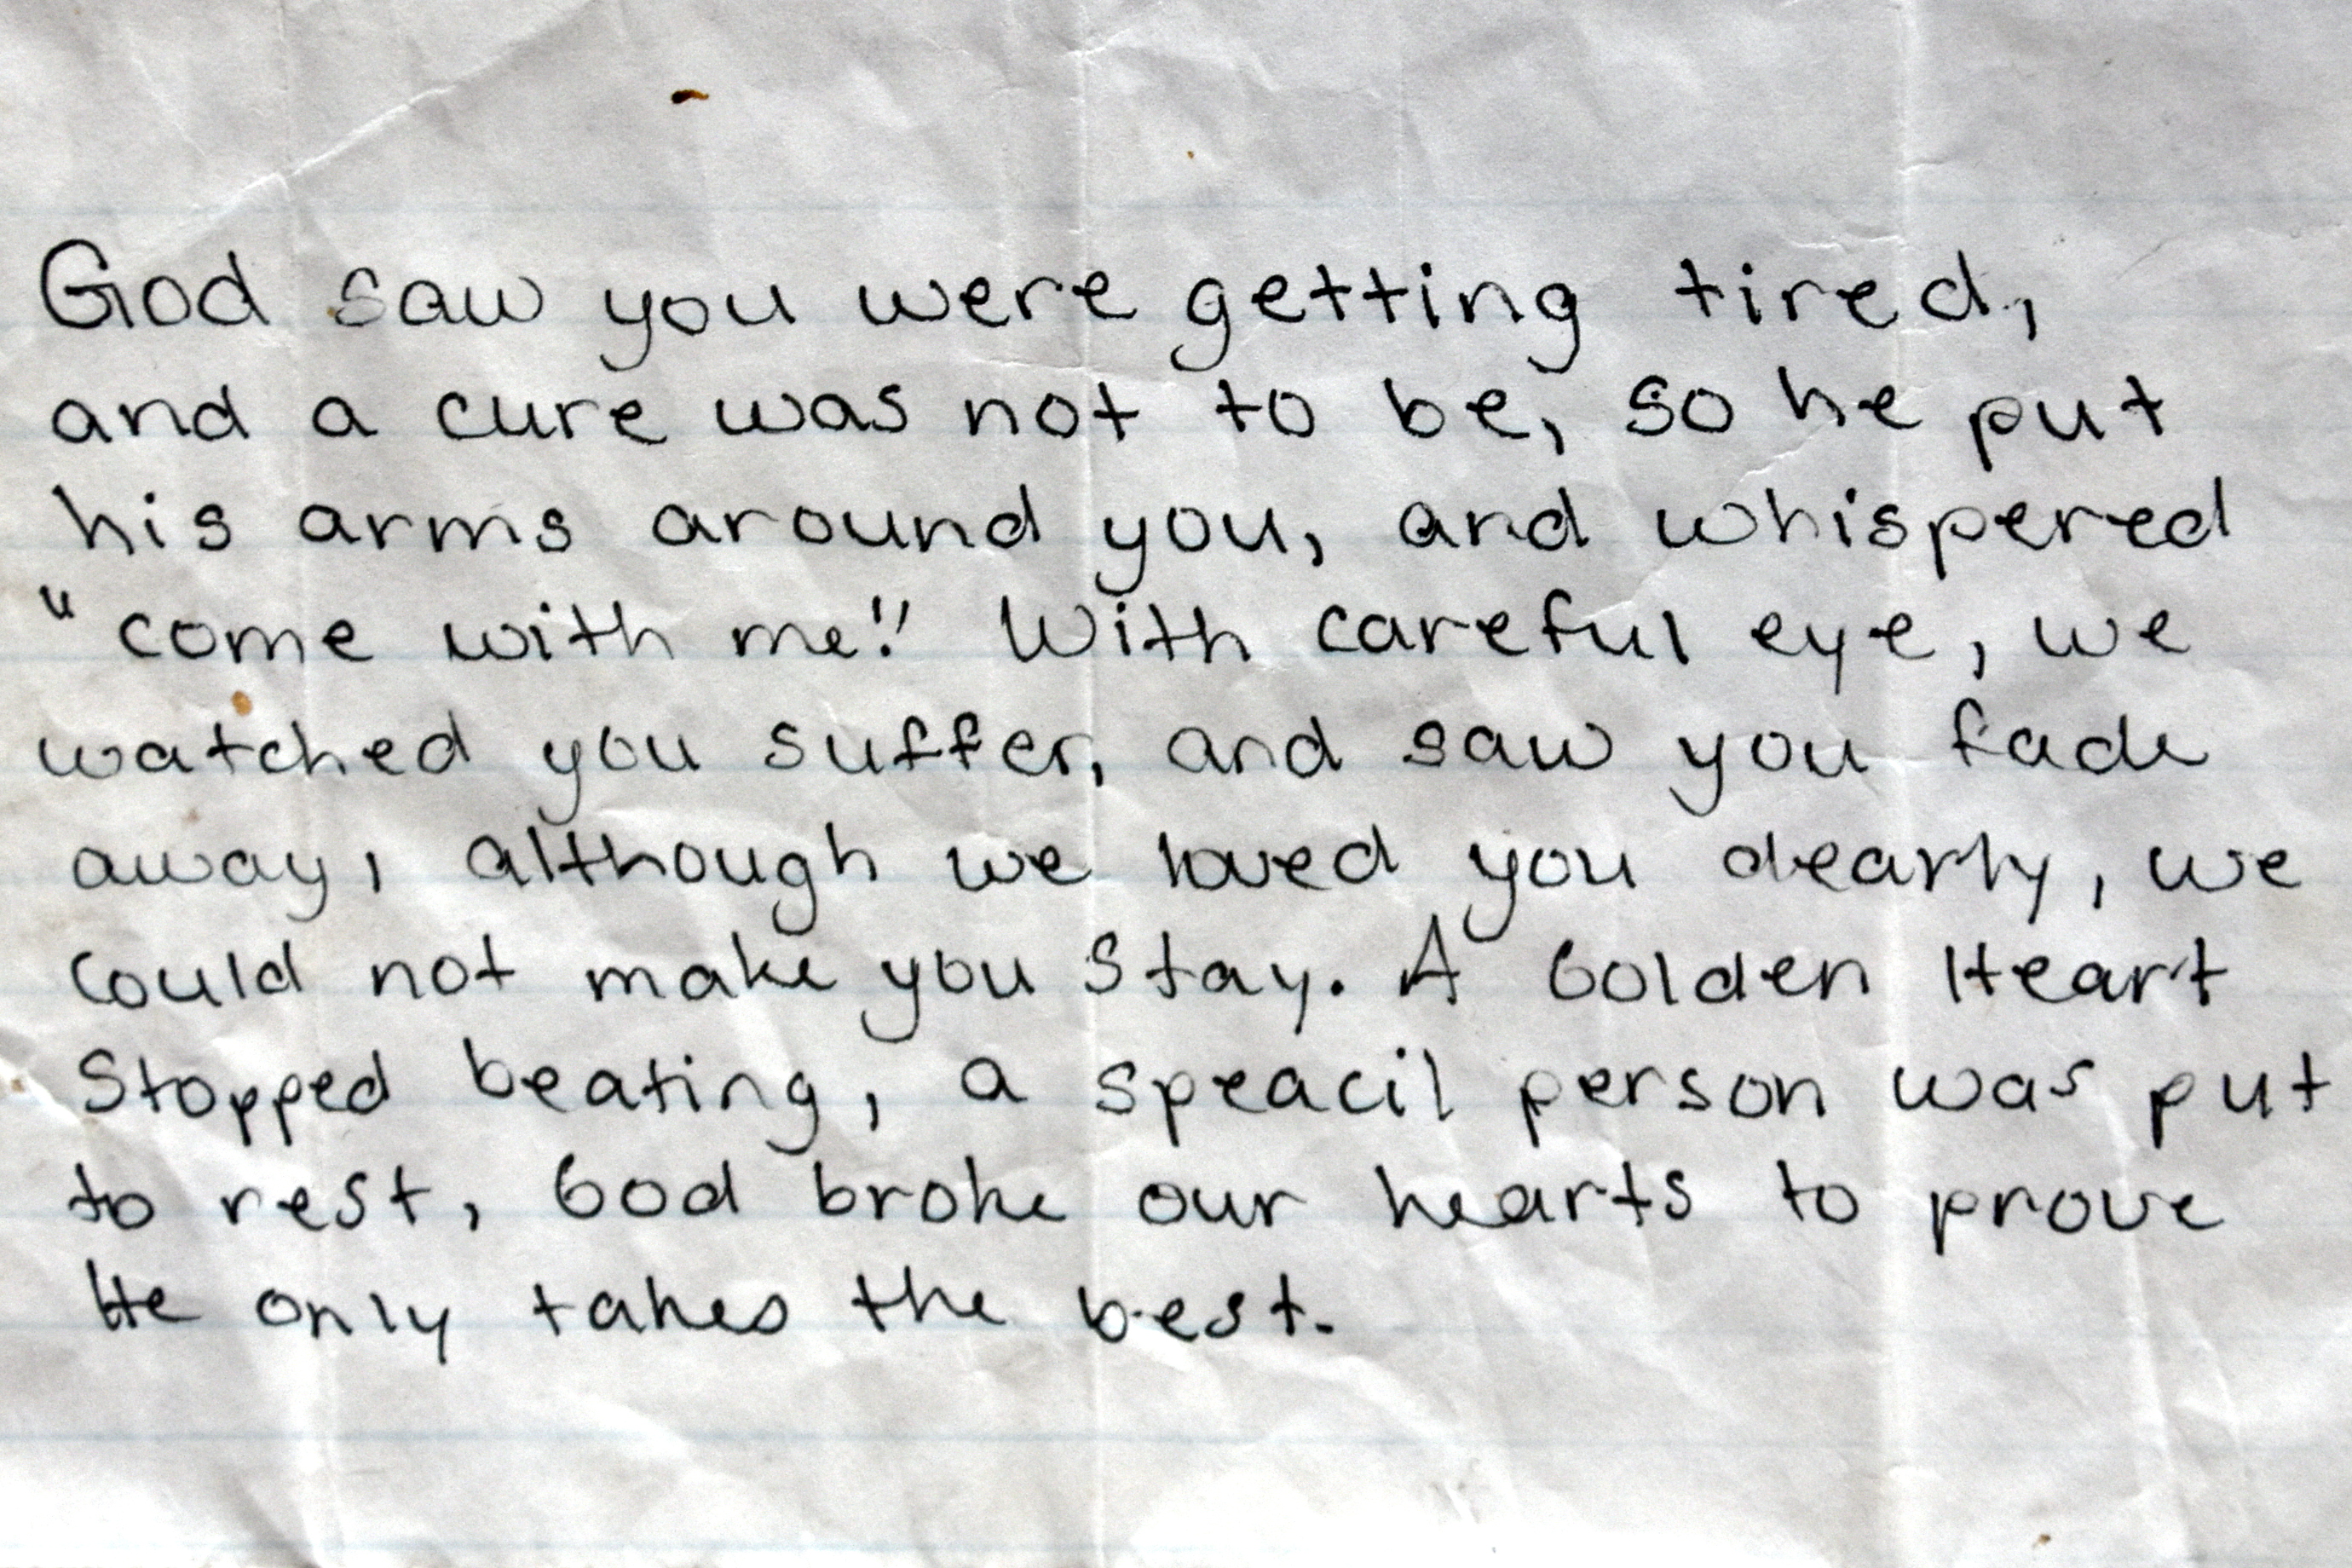 God saw you were getting tired,
and a cure was not to be, so he put
his arms around you, and whispered
"come with me!" With careful eye, we
watched you suffer, and saw you fade
away, although we loved you dearly, we
could not make you stay. A Golden Heart
Stopped beating, a speacil person was put
to rest, God broke our hearts to prove
He only takes the best.